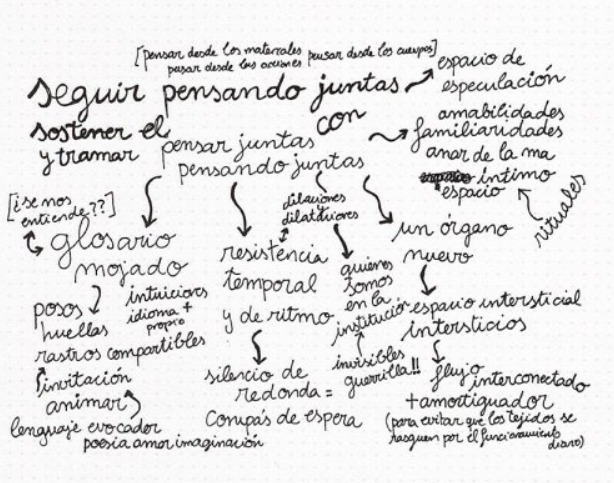 [pensar desde los materiales pensar desde los cuerpos]
pensar desde las acciones
seguir pensando juntas
espacio de
especulación
sostener el
y tramar
pensar juntas
pensando juntas
con
amabilidades
familiaridades
anar de la ma
íntimo
espacio
rituales
[¿se nos
entiende??]
glosario
mojado
intuiciones
idioma +
propio
posos
huellas
rastros compartibles
invitación
animar
lenguaje evocador
poesía amor imaginación
resistencia
temporal
y de ritmo
silencio de
redonda =
compás de espera
dilaciones
dilataciones
quiénes
somos
en la
institución
invisibles
guerrilla!!
un órgano
nuevo
espacio intersticial
intersticios
flujo interconectado
+ amortiguador
(para evitar que los tejidos se
rasguen por el funcionamiento
diario)